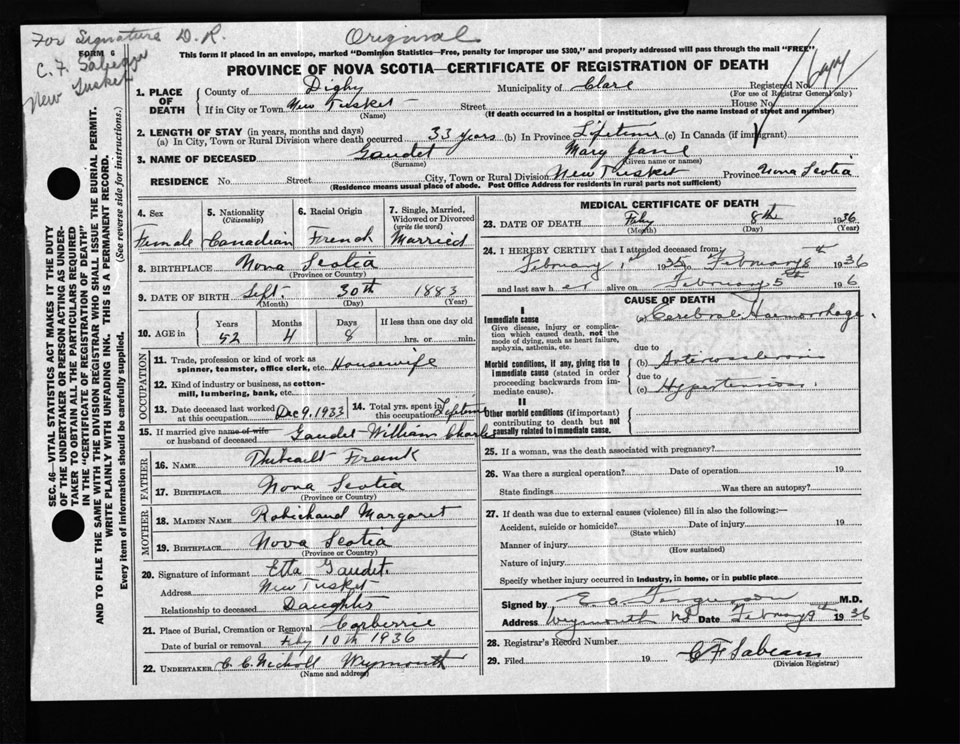 For Signature D. R.
Original
FORM 6
C. F. Sabean
New Tusket
Copy
This form if placed in an envelope, marked "Dominion Statistics—Free, penalty for improper use $300," and properly addressed will pass through the mail "FREE"
PROVINCE OF NOVA SCOTIA—CERTIFICATE OF REGISTRATION OF DEATH
SEC. 46—VITAL STATISTICS ACT MAKES IT THE DUTY
OF THE UNDERTAKER OR PERSON ACTING AS UNDER-
TAKER TO OBTAIN ALL THE PARTICULARS REQUIRED
IN THE "CERTIFICATE OF REGISTRATION OF DEATH"
AND TO FILE THE SAME WITH THE DIVISION REGISTRAR WHO SHALL ISSUE THE BURIAL PERMIT.
WRITE PLAINLY WITH UNFADING INK. THIS IS A PERMANENT RECORD.
Every item of information should be carefully supplied. (See reverse side for instructions.)
1. PLACE OF DEATH County of Digby Municipality of Clare Registered No.
(For use of Registrar General only)
If in City or Town New Tusket Street House No.
(Name) (If death occurred in a hospital or institution, give the name instead of street and number)
2. LENGTH OF STAY (in years, months and days)
(a) In City, Town or Rural Division where death occurred 33 years (b) In Province Lifetime (c) In Canada (if immigrant)
3. NAME OF DECEASED Gaudet Mary Jane
(Surname) (Given name or names)
RESIDENCE No. Street City, Town or Rural Division New Tusket Province Nova Scotia
(Residence means usual place of abode. Post Office Address for residents in rural parts not sufficient)
4. Sex 5. Nationality (Citizenship) 6. Racial Origin 7. Single, Married, Widowed or Divorced (write the word)
Female Canadian French Married
8. BIRTHPLACE Nova Scotia
(Province or Country)
9. DATE OF BIRTH Sept. 30th 1883
(Month) (Day) (Year)
10. AGE in Years Months Days If less than one day
52 4 8 hrs. or min.
OCCUPATION
11. Trade, profession or kind of work as
spinner, teamster, office clerk, etc. Housewife
12. Kind of industry or business, as cotton-
mill, lumbering, bank, etc.
13. Date deceased last worked at this occupation Dec 9, 1933 14. Total yrs. spent in this occupation Lifetime
15. If married give name of wife or husband of deceased Gaudet William Charles
FATHER
16. NAME Thibault Frank
17. BIRTHPLACE Nova Scotia
(Province or Country)
MOTHER
18. MAIDEN NAME Robichaud Margaret
19. BIRTHPLACE Nova Scotia
(Province or Country)
20. Signature of informant Etta Gaudet.
Address New Tusket
Relationship to deceased Daughter
21. Place of Burial, Cremation or Removal Corberrie
Date of burial or removal Feby 10th 1936
22. UNDERTAKER C. C. Nicholl Weymouth
(Name and address)
MEDICAL CERTIFICATE OF DEATH
23. DATE OF DEATH Feby 8th 1936
(Month) (Day) (Year)
24. I HEREBY CERTIFY that I attended deceased from
February 1st 1935 to February 8th 1936
and last saw her alive on February 5th 1936
CAUSE OF DEATH
I
Immediate cause (a) Cerebral Haemorrhage.
Give disease, injury or complica-
tion which caused death, not the
mode of dying, such as heart failure,
asphyxia, asthenia, etc. due to
Morbid conditions, if any, giving rise to (b) Arteriosclerosis
immediate cause (stated in order due to
proceeding backwards from im- (c) Hypertension.
mediate cause).
II
Other morbid conditions (if important)
contributing to death but not
causally related to immediate cause.
25. If a woman, was the death associated with pregnancy?
26. Was there a surgical operation? Date of operation 19
State findings Was there an autopsy?
27. If death was due to external causes (violence) fill in also the following:—
Accident, suicide or homicide? Date of injury 19
(State which)
Manner of injury
(How sustained)
Nature of injury
Specify whether injury occurred in industry, in home, or in public place
Signed by E. O. Ferguson M.D.
Address Weymouth NS Date February 9th 1936
28. Registrar's Record Number
29. Filed 19 C F Sabean
(Division Registrar)